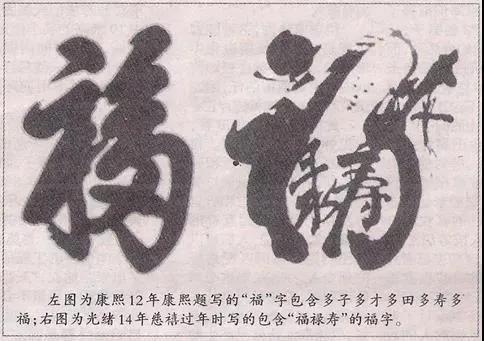 福 福
禄寿
左图为康熙12年康熙题写的“福”字包含多子多才多田多寿多
福;右图为光绪14年慈禧过年时写的包含“福禄寿”的福字。